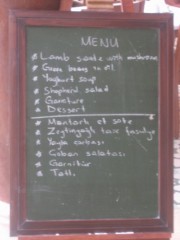 MENU
Lamb saute with mushrooms
Green beans in oil
Yoghurt soup
Shepherd salad
Garniture
Dessert
Mantarlı et sote
Zeytinyağlı taze fasulye
Yayla çorbası
Çoban salatası
Garnitür
Tatlı